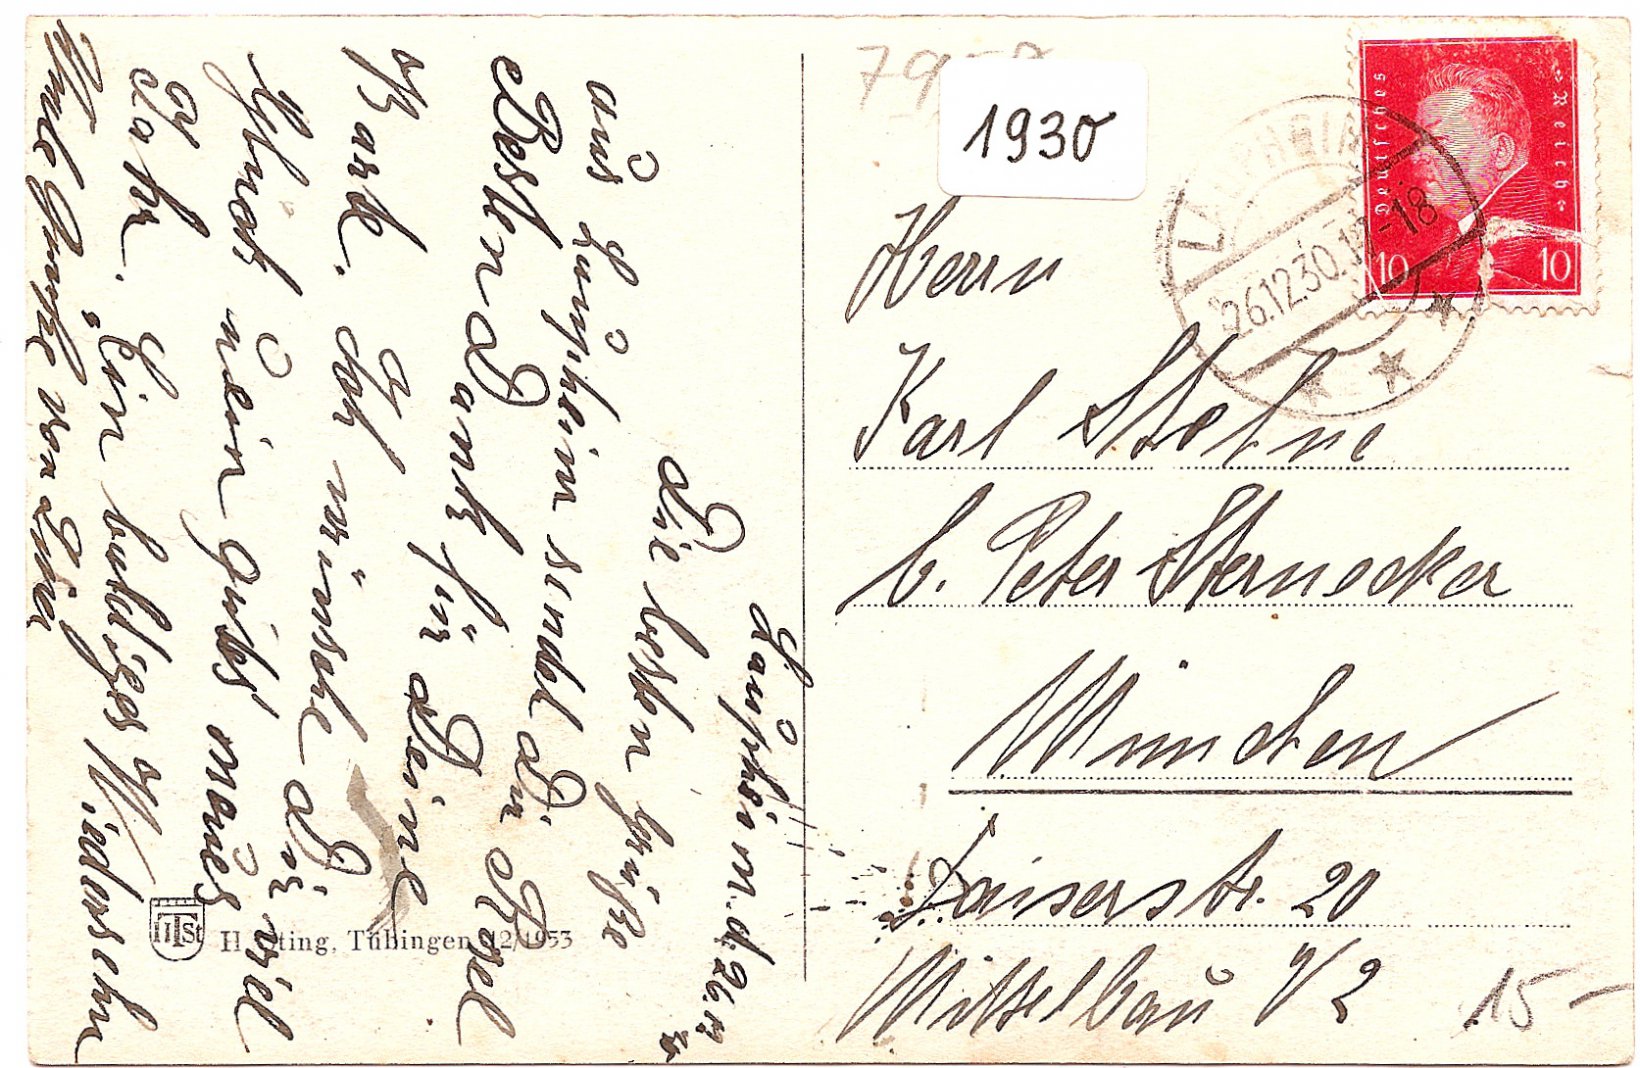 Laupheim. d. 26. 12. 30
Die besten Grüße
aus Laupheim sendet Dir Rosel
Besten Dank für Deine
Karte. Ich wünsche Dir viel
Glück u ein gutes neues
Jahr. Ein baldiges Wiedersehn
Viele Grüße von Lina
HTSt
Tübingen 12/1953
1930
Deutsches
Reich
10
10
LAUPHEIM
26.12.30.
-18
Herrn
Karl
b. Peter Sternecker
München
Kaiserstr. 20
Mittelbau V 2
15 -